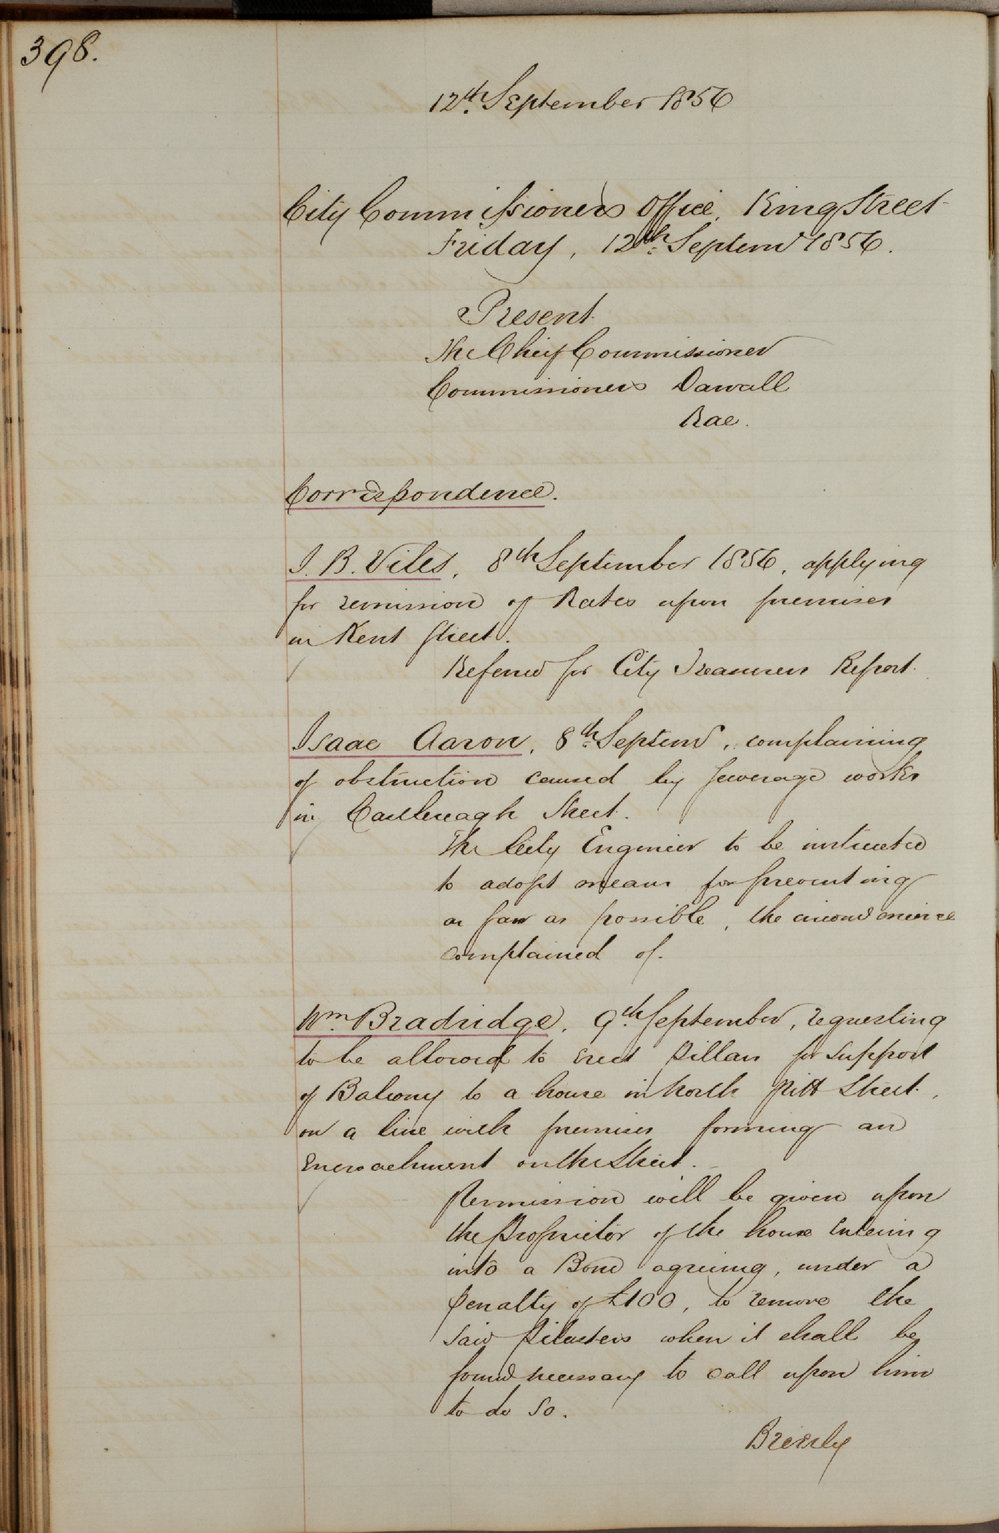 398.
12th. September 1856
City Commissioners Office, King Street
Friday, 12th. Septemr 1856.
Present
The Chief Commissioner
Commissioners Darvall
Rae.
Correspondence.
J. B. Viles, 8th September 1856, applying
for remission of Rates upon premises
in Kent Street.
Referred for City Treasurers Report.
Isaac Aaron, 8th. Septemr, complaining
of obstruction caused by Sewerage works
in Castlereagh Street.
The City Engineer to be instructed
to adopt means for preventing
as far as possible, the inconvenience
complained of.
Wm. Bradridge, 9th. September, requesting
to be allowed to erect Pillars for support
of Balcony to a house in North Pitt Street,
on a line with premises forming an
Encroachment on the Street.
Permission will be given upon
the Proprietor of the house entering
into a Bond agreeing, under a
penalty of £100, to remove the
said Pilasters when it shall be
found necessary to call upon him
to do so.